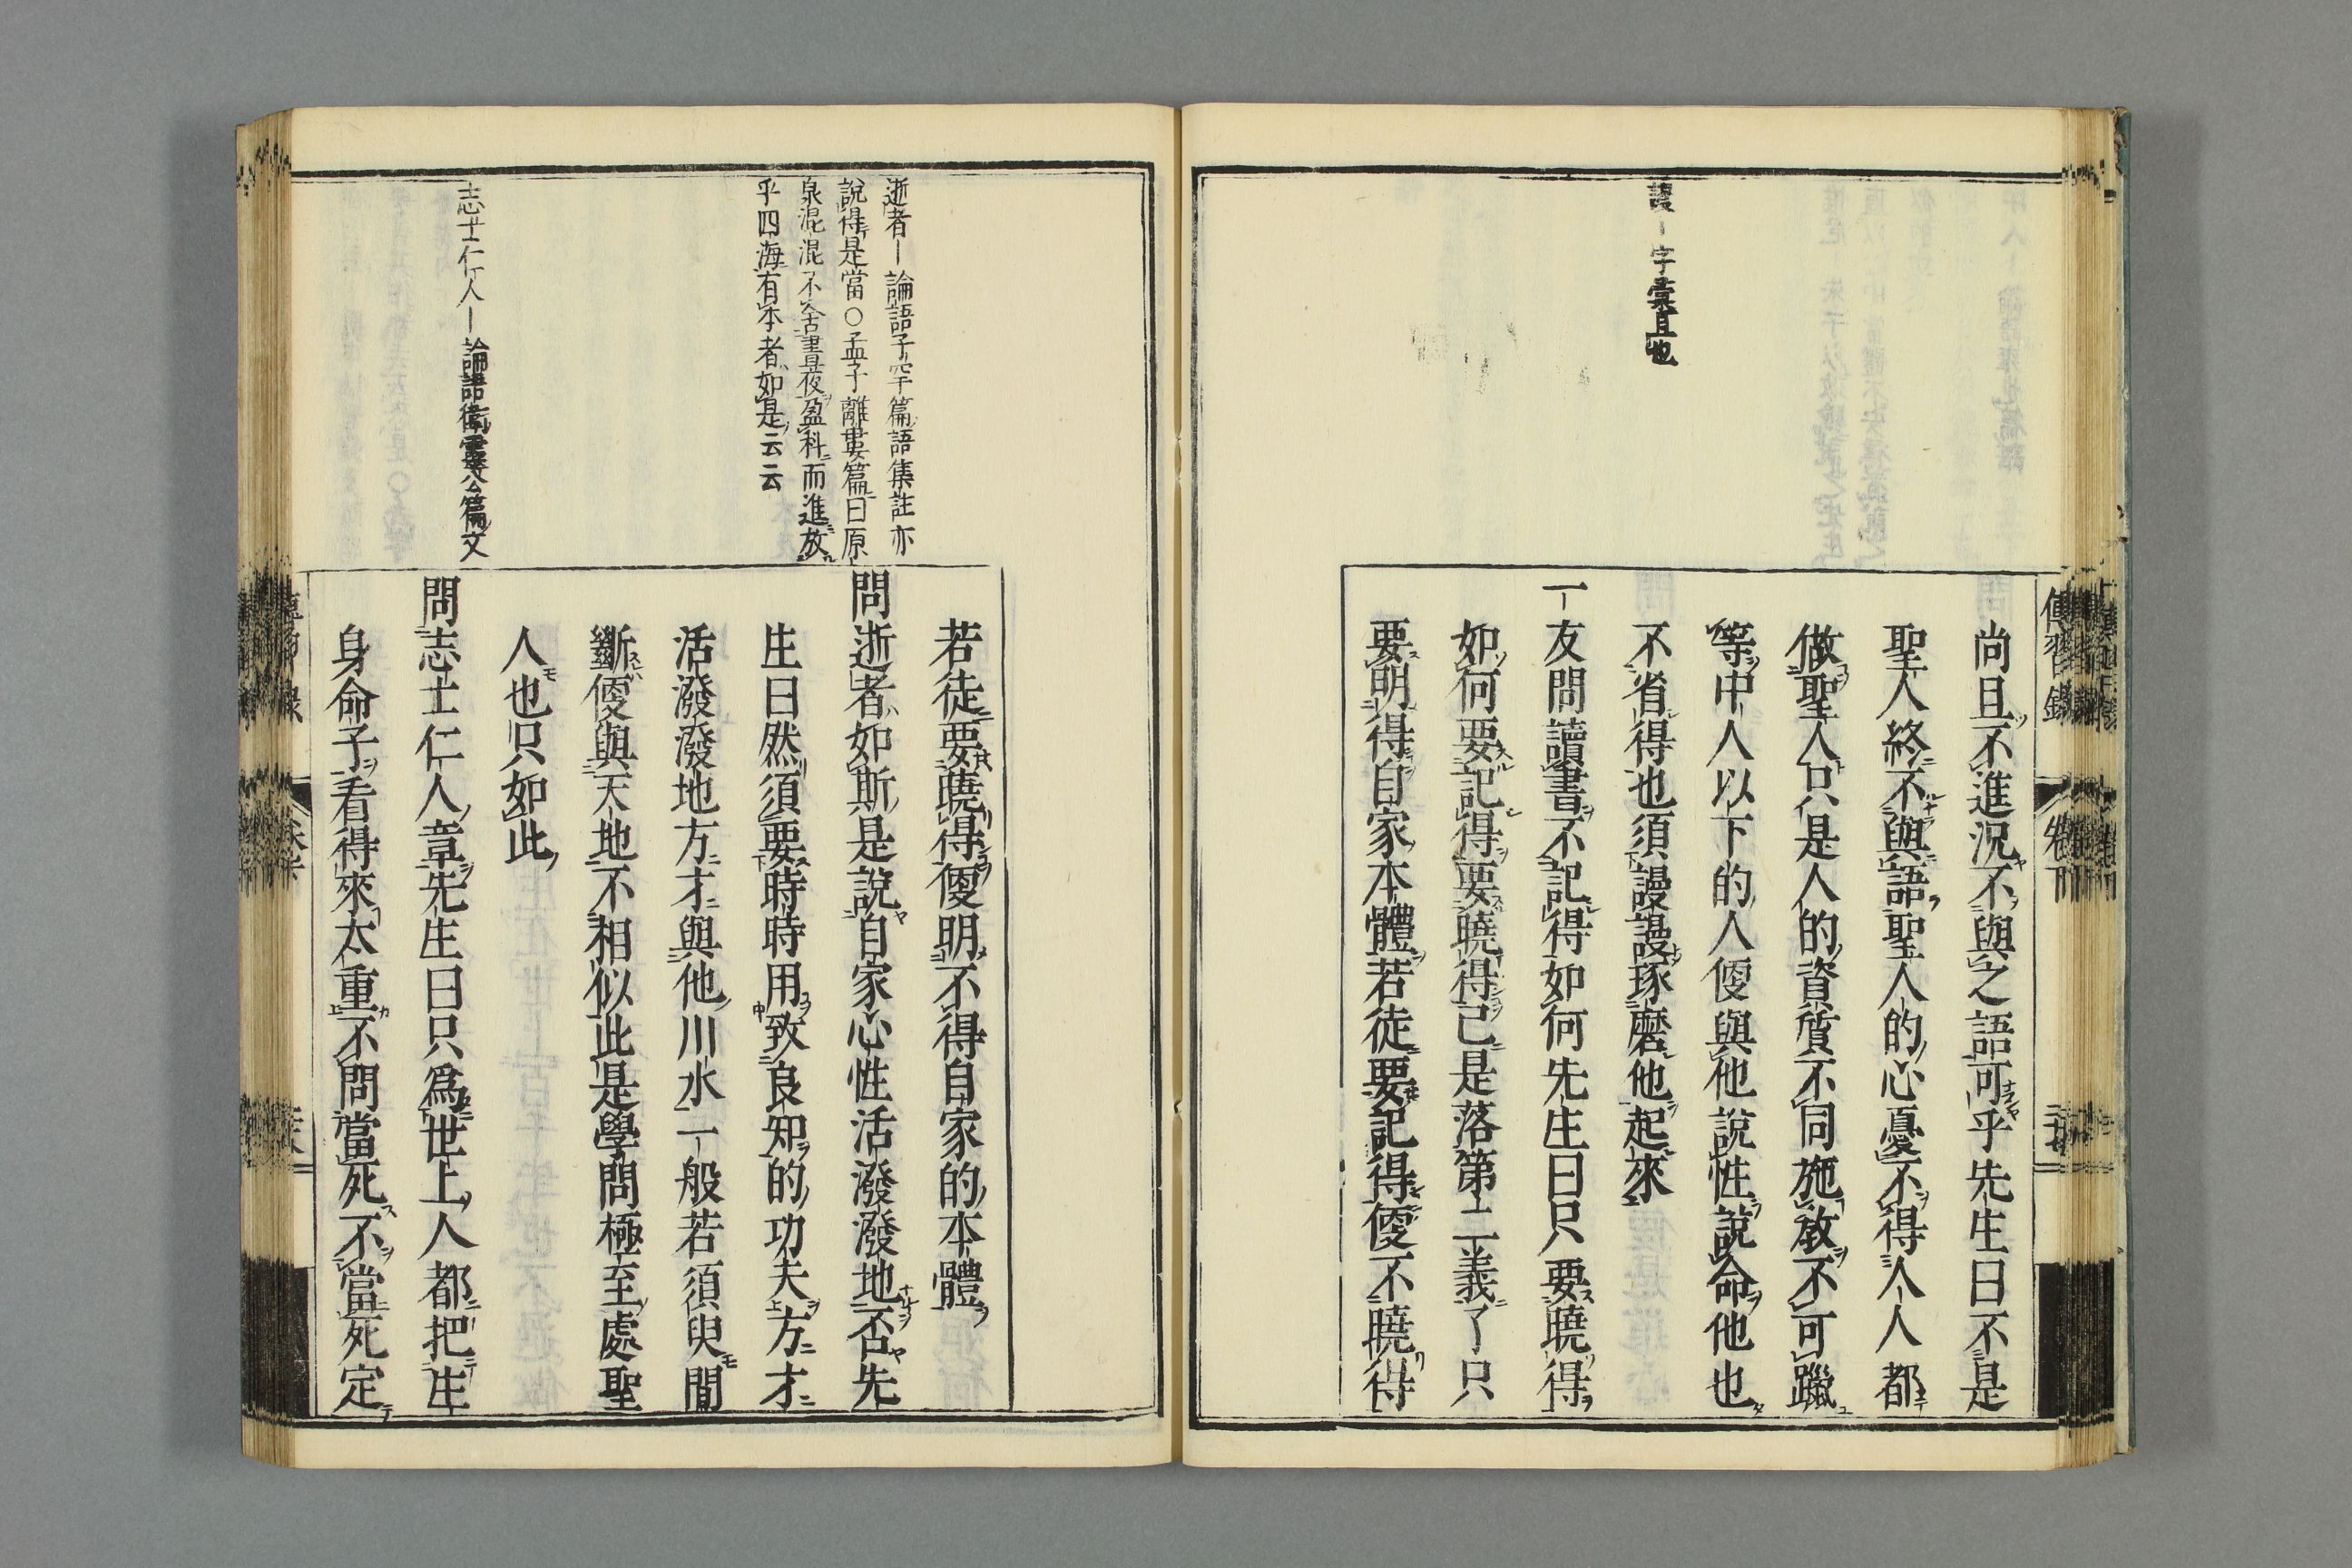 傳習錄
卷下
二十七
謾—字彙且也
尚且不進況不與之語可乎先生曰不是
聖人終不與語聖人的心憂不得人人都
做聖人只是人的資質不同施教不可躐
等中人以下的人便與他說性說命他也
不省得也須謾謾琢磨他起來
一友問讀書不記得如何先生曰只要曉得
如何要記得要曉得已是落第二義了只
要明得自家本體若徒要記得便不曉得
逝者—論語子罕篇語集註亦
說得是當○孟子離婁篇曰原
泉混混不舍晝夜盈科而進放
乎四海有本者如是云云
志士仁人—論語衞靈公篇文
若徒要曉得便明不得自家的本體
問逝者如斯是說自家心性活潑潑地否先
生曰然須要時時用致良知的功夫方才
活潑潑地方才與他川水一般若須臾間
斷便與天地不相似此是學問極至處聖
人也只如此
問志士仁人章先生曰只爲世上人都把生
身命子看得來太重不問當死不當死定